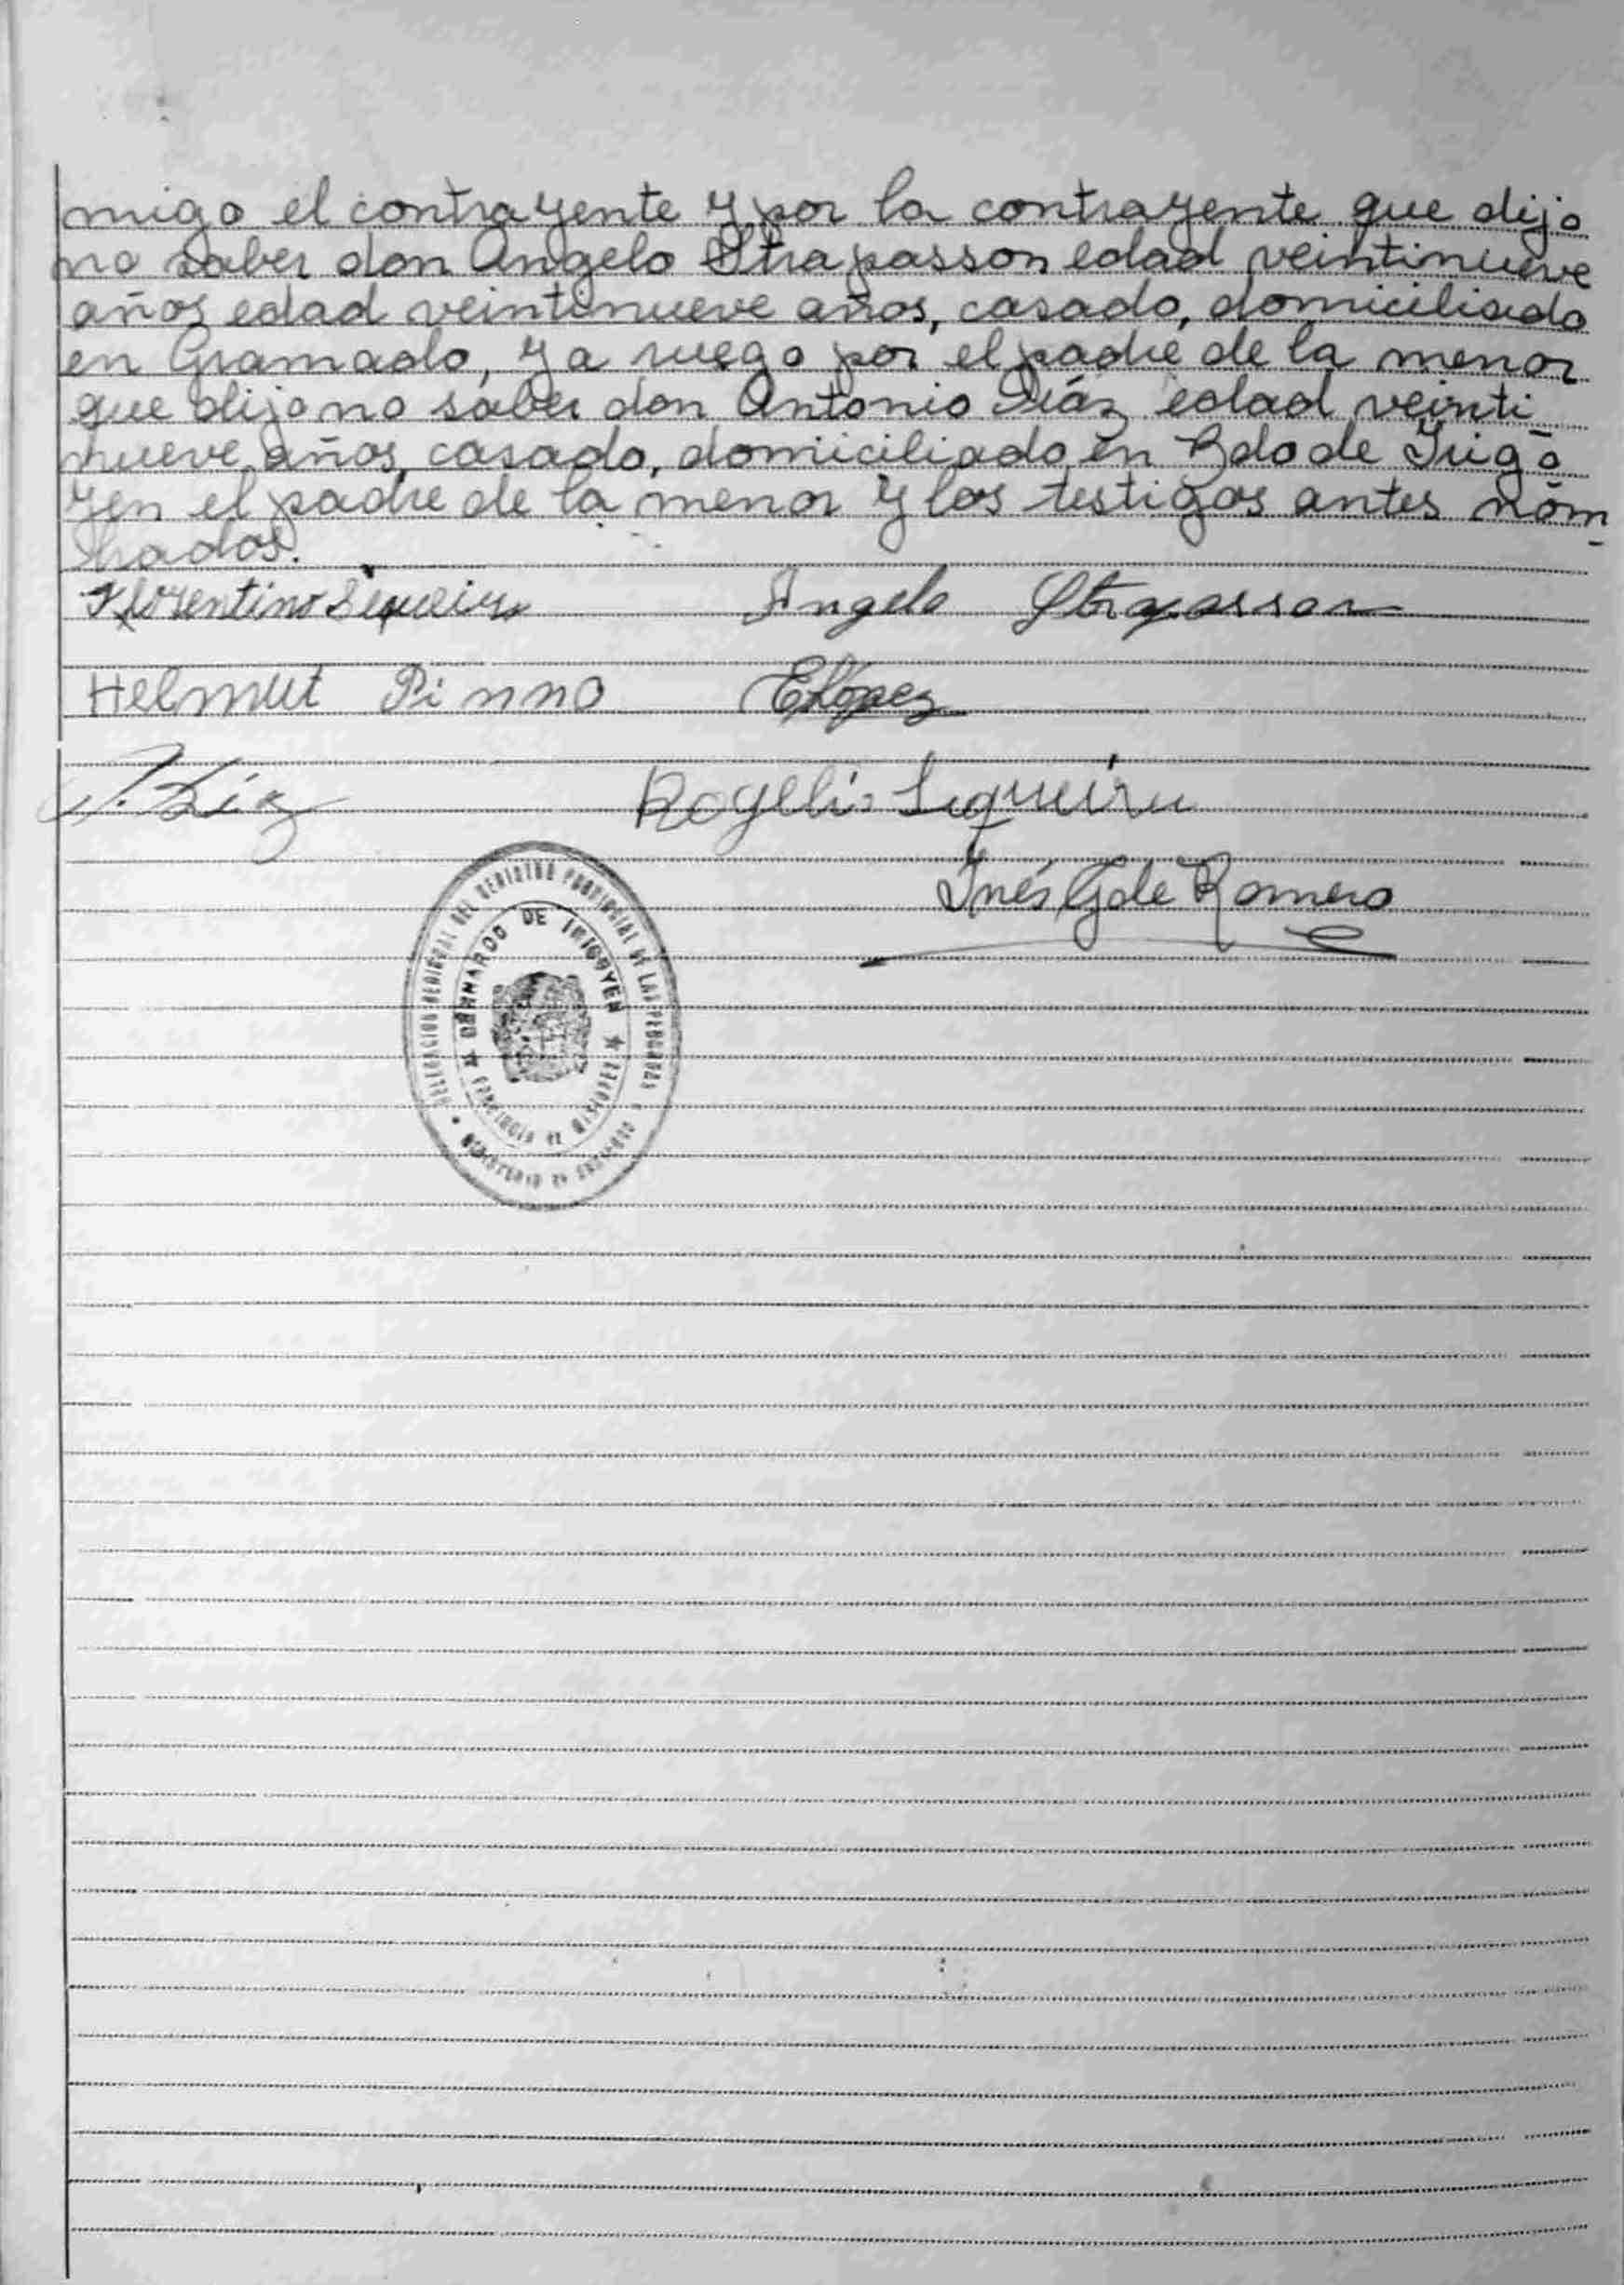 migo el contrayente y por la contrayente que dijo
no saber don Angelo Strapasson edad veintinueve
años edad veintinueve años, casado, domiciliado
en Gramado, y a ruego por el padre de la menor
que dijo no saber don Antonio Díaz edad veinti
nueve años, casado, domiciliado en Bdo de Irigo
yen el padre de la menor y los testigos antes nom
brados.
Florentino Siqueira Angelo Strapasson
Helmut Pinno E López
A. Díaz Rogelio Siqueira
Inés G de Romero
DELEGACION REGIONAL DEL REGISTRO PROVINCIAL DE LAS PERSONAS
BERNARDO DE IRIGOYEN
PROVINCIA DE MISIONES
MINISTERIO DE GOBIERNO